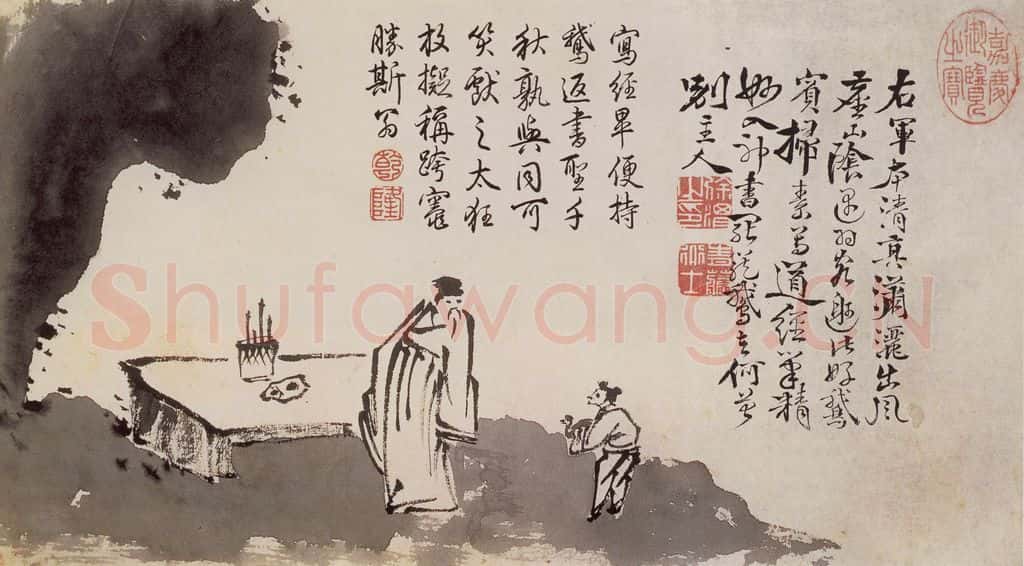 嘉慶御覽之寶
右軍本清真瀟灑出風
塵山陰遇羽客愛此好鵞
賓掃素寫道經筆精
妙入神書罷籠鵞去何曾
別主人
徐渭之印
寫經畢便持
鵞返書聖千
秋孰與同可
笑獻之太狂
放擬稱跨竈
勝斯翁
乾隆
Shufawang.CN